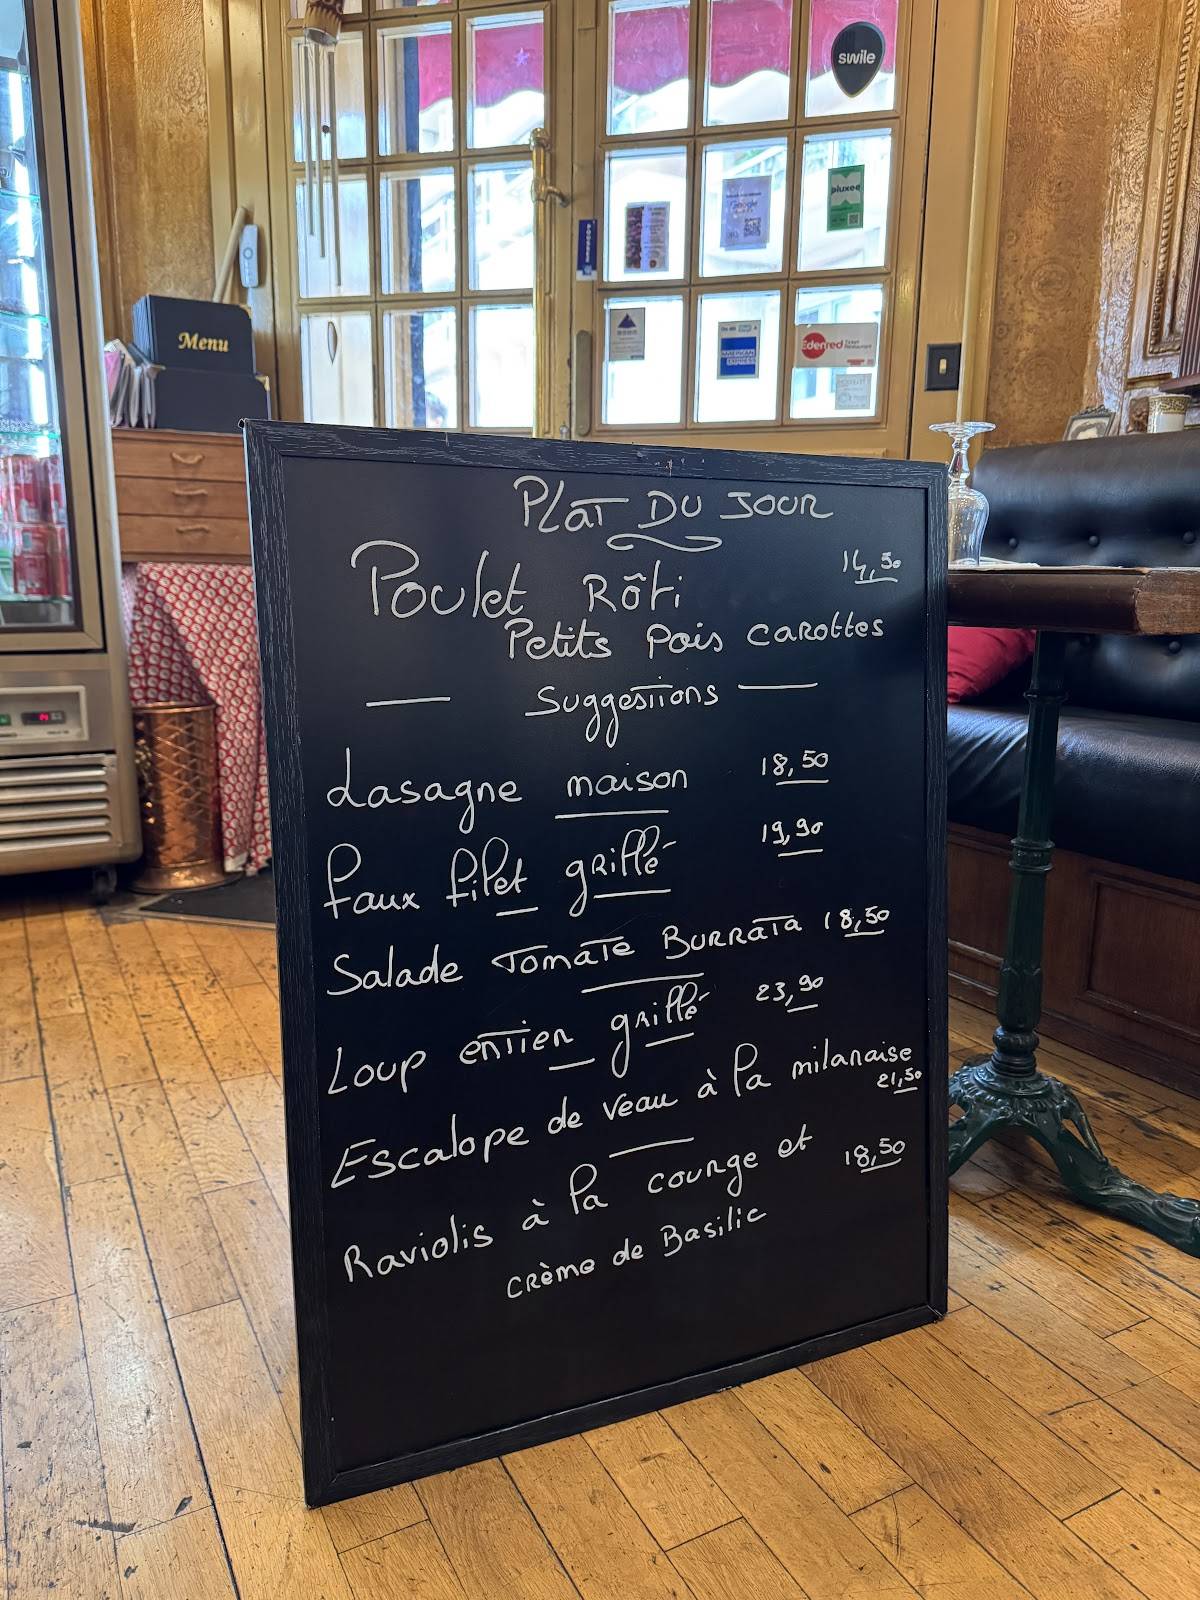 swile
pluxee
Google
POUSSEZ
AMERICAN
EXPRESS
Edenred
Ticket
Restaurant
Menu
PLAT DU JOUR
Poulet Rôti 14,50
Petits pois carottes
— Suggestions —
Lasagne maison 18,50
Faux filet grillé 19,90
Salade Tomate Burrata 18,50
Loup entier grillé 23,90
Escalope de veau à la milanaise
21,50
Raviolis à la courge et 18,50
crème de Basilic